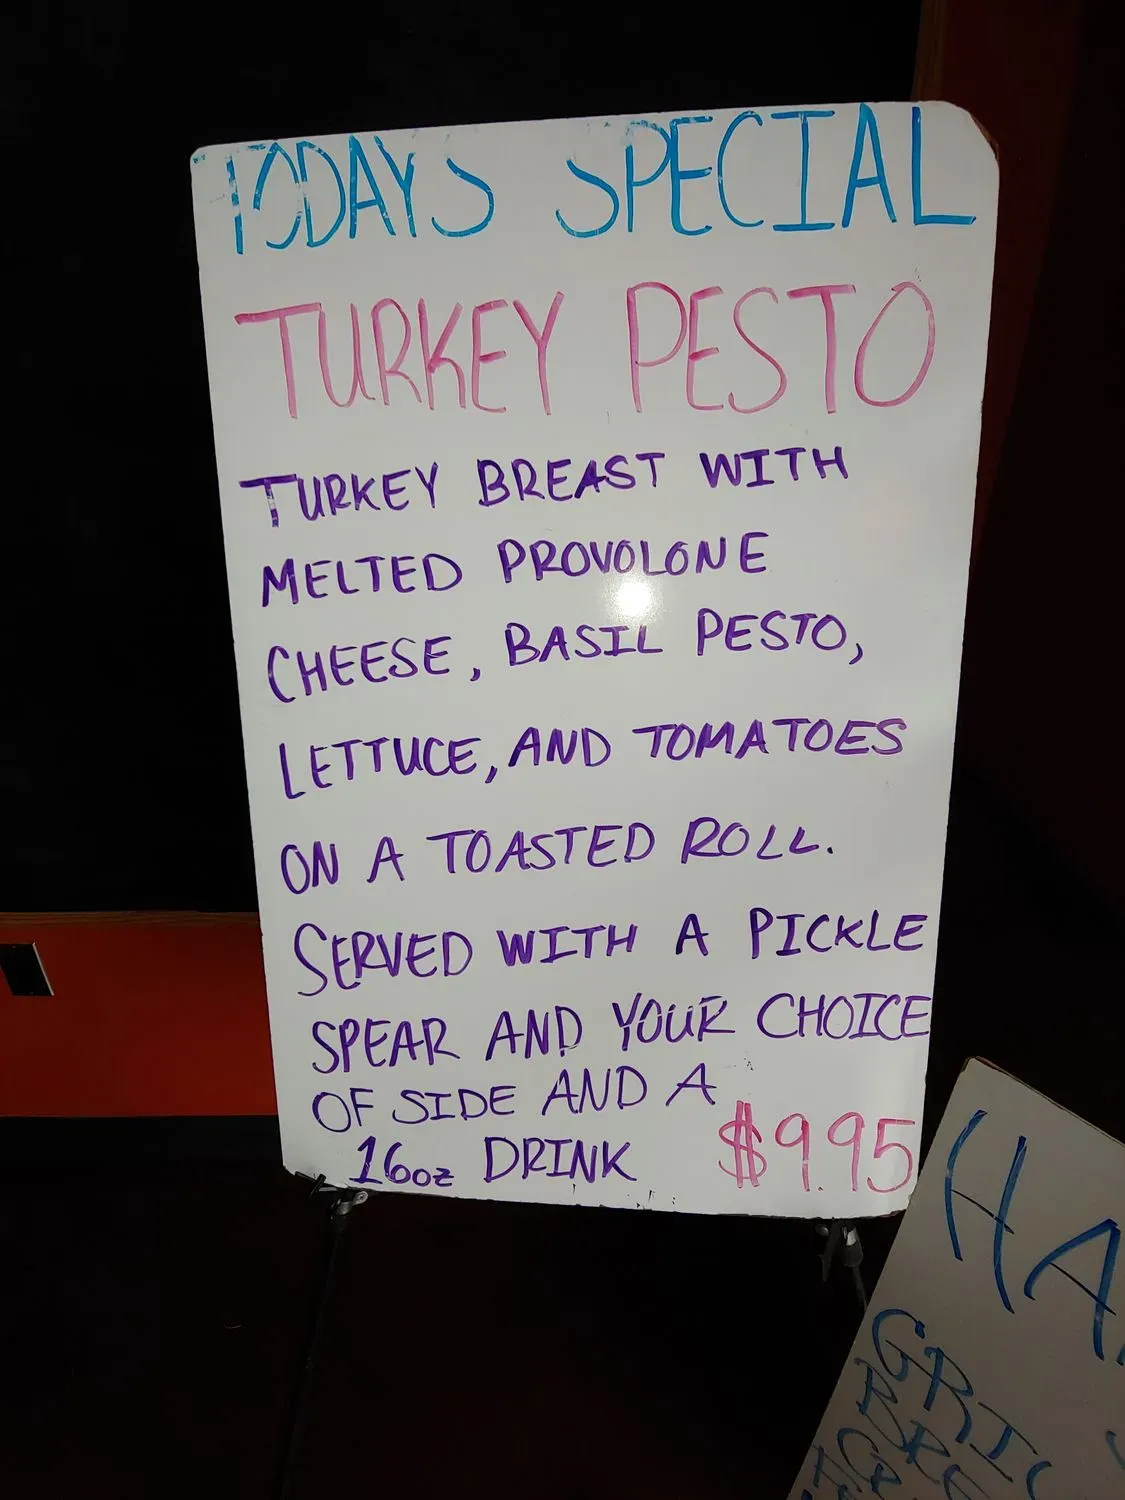 TODAYS SPECIAL
TURKEY PESTO
TURKEY BREAST WITH
MELTED PROVOLONE
CHEESE, BASIL PESTO,
LETTUCE, AND TOMATOES
ON A TOASTED ROLL.
SERVED WITH A PICKLE
SPEAR AND YOUR CHOICE
OF SIDE AND A
16oz DRINK $9.95